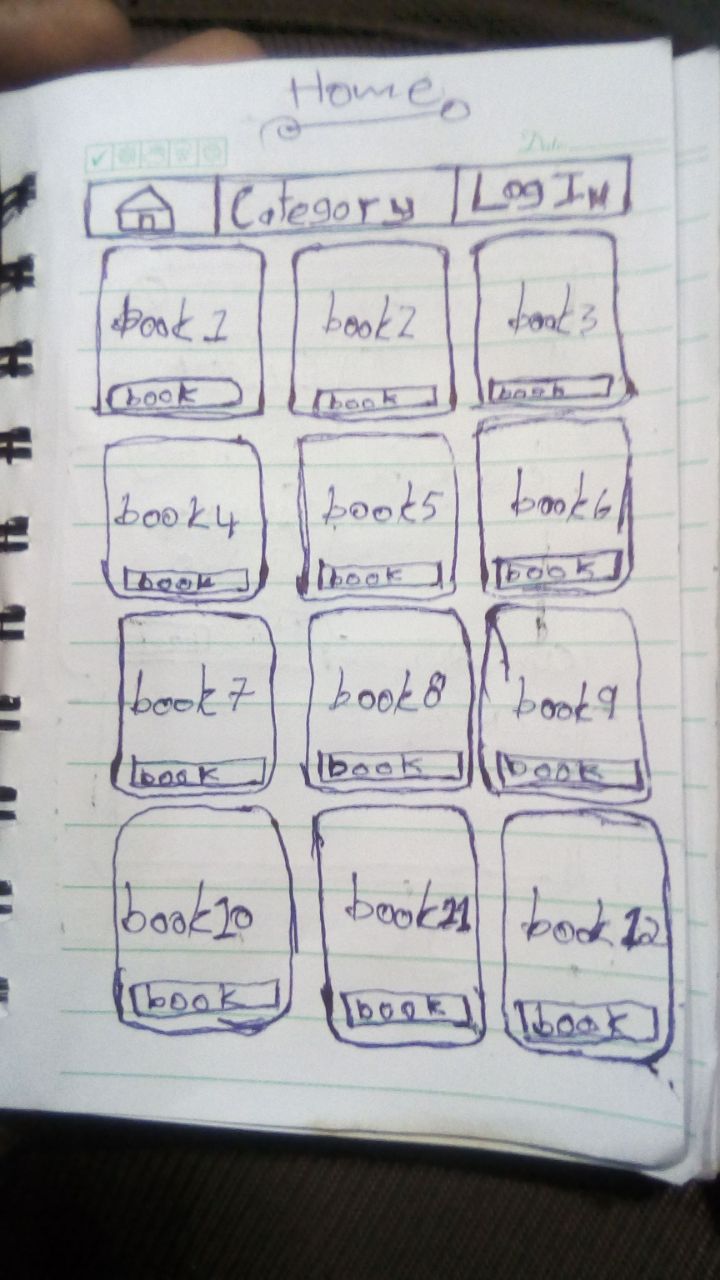 Home
Date
Category Log In
book 1 book 2 book 3
book book book
book 4 book 5 book 6
book book book
book 7 book 8 book 9
book book book
book 10 book 11 book 12
book book book